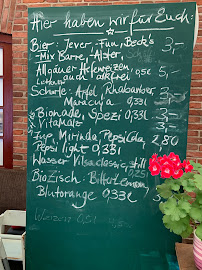 Hier haben wir für Euch:
Bier: Jever-Fun, Beck's 3,-
-Mix Barre-Alster
Allgäuer Hefeweizen
auch alkfrei 0,5l 5,-
Schorle: Apfel Rhabarber 3,-
Maracuja 0,33l
Bionade, Spezi 0,33l 3,-
Vitamalz 3,-
7up, Mirinda Pepsi Cola, 2,80
Pepsi light 0,33l
Wasser Vilsa classic, still
BioZisch: Bitter Lemon
Blutorange 0,33l
Weizen 0,5l